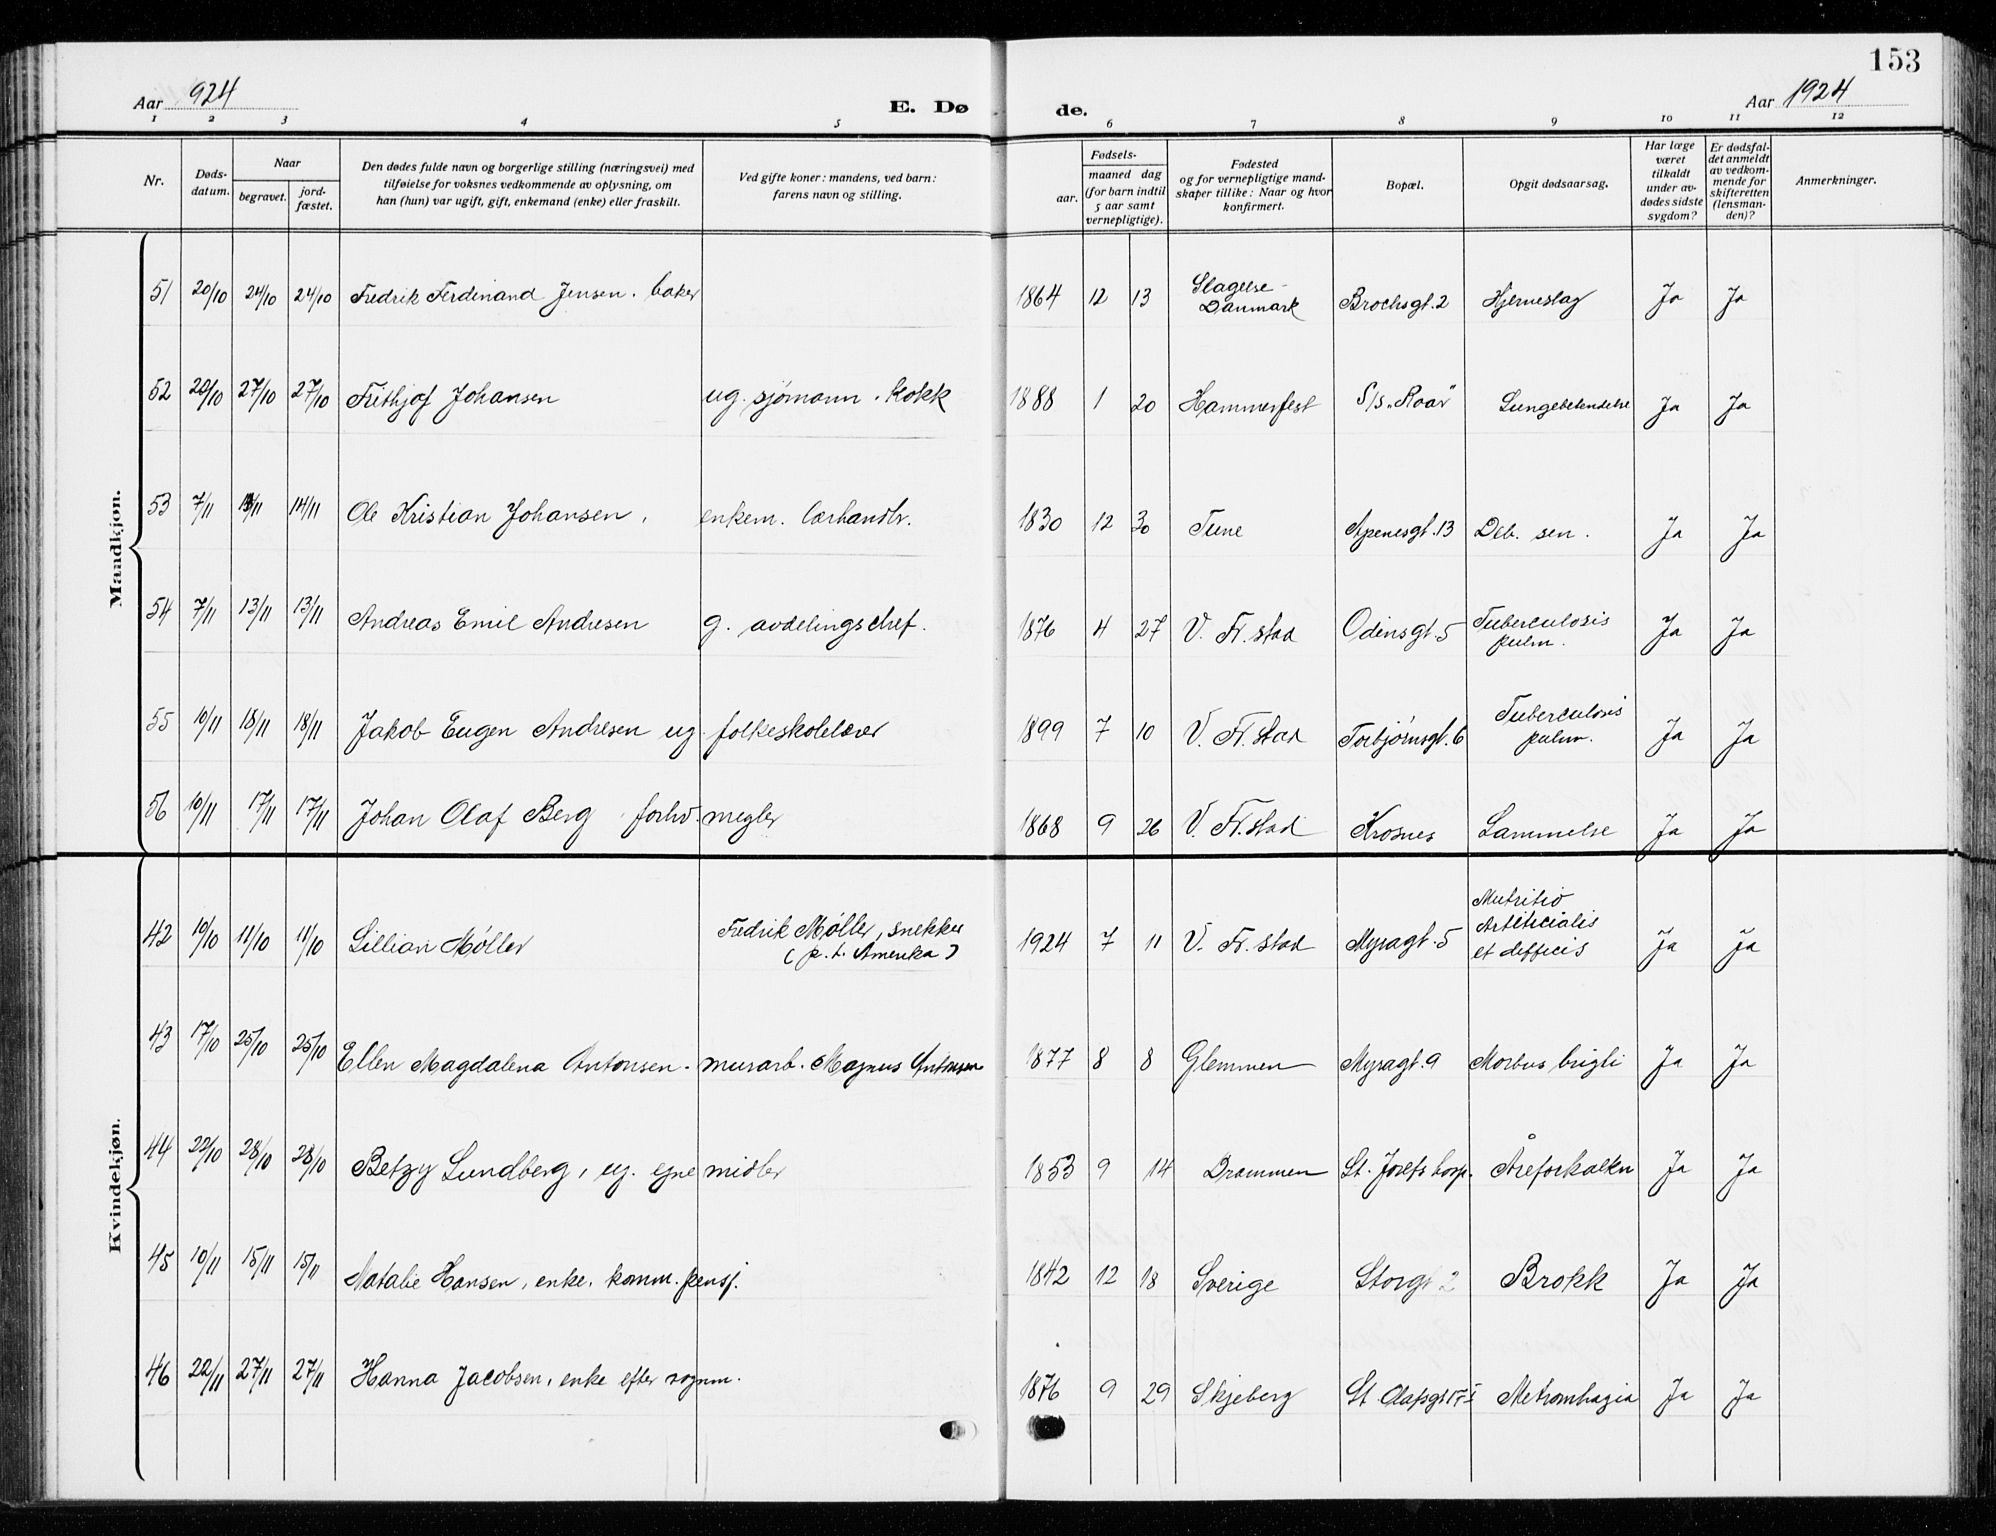 153
Aar 924 E. Dø de. Aar 1924
1 2 3 4 5 6 7 8 9 10 11 12
Nr. Døds-datum. Naar begravet. jord-fæstet. Den dødes fulde navn og borgerlige stilling (næringsvei) med tilføielse for voksnes vedkommende av oplysning, om han (hun) var ugift, gift, enkemand (enke) eller fraskilt. Ved gifte koner: mandens, ved barn: farens navn og stilling. Fødsels- aar. maaned dag (for barn indtil 5 aar samt vernepligtige). Fødested og for vernepligtige mand-skaper tillike: Naar og hvor konfirmert. Bopæl. Opgit dødsaarsag. Har læge været tilkaldt under av-dødes sidste sygdom? Er dødsfal-det anmeldt av vedkom-mende for skifteretten (lensman-den)? Anmerkninger.
Mandkjøn.
51 20/10 24/10 24/10 Fredrik Ferdinand Jensen. baker 1864 12 13 Slagelse - Danmark Brochsgt. 2 Hjerneslag Ja Ja
52 20/10 27/10 27/10 Frithjof Johansen ug. sjømann. Kokk 1888 1 20 Hammerfest S/s. "Roar" Lungebetendelse Ja Ja
53 7/11 14/11 Ole Kristian Johansen, enkem. Lærhandlr. 1830 12 30 Tune Apenesgt. 13 Deb. sen. Ja Ja
54 7/11 13/11 13/11 Andreas Emil Andresen g. avdelingschef. 1876 4 27 V. Fr.stad Odinsgt. 5 Tuberculosis pulm. Ja Ja
55 10/11 18/11 18/11 Jakob Eugen Andresen ug. folkeskolelærer 1899 7 10 V. Fr.stad Torbjørnsgt. 6 Tuberculosis pulm. Ja Ja
56 10/11 17/11 17/11 Johan Olaf Berg forhv. megler 1868 9 26 V. Fr.stad Krosnes Lammelse Ja Ja
Kvindekjøn.
42 10/10 11/10 11/10 Lillian Møller Fredrik Møller, snekker (p.t. Amerika) 1924 7 11 V. Fr.stad Myragt. 5 Nutritio Artificialis et difficis Ja Ja
43 17/10 25/10 25/10 Ellen Magdalena Antonsen. murarb. Magnus Antonsen 1877 8 8 Glemmen Myragt. 9 Morbus brigti Ja Ja
44 22/10 28/10 28/10 Betzy Lundberg, ug. egne midler 1853 9 14 Drammen St. Josefs hosp. Åreforkalkn Ja Ja
45 10/11 15/11 15/11 Natalie Hansen, enke, komm. pensj. 1842 12 18 Sverige Storgt 2 Brokk Ja Ja
46 22/11 27/11 27/11 Hanna Jacobsen, enke efter vognm. 1876 9 29 Skjeberg St Olafsgt Metromhagia Ja Ja